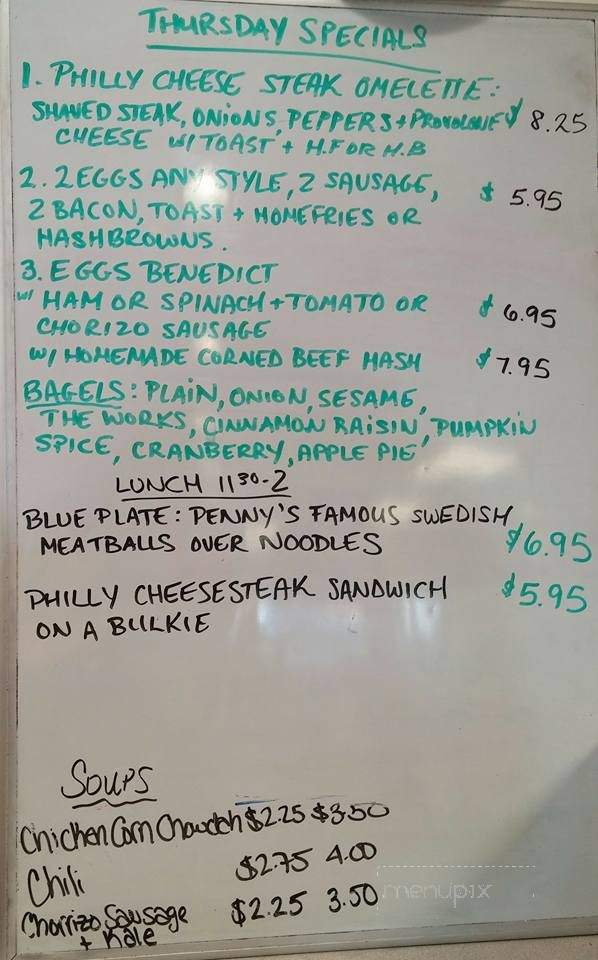 THURSDAY SPECIALS
1. PHILLY CHEESE STEAK OMELETTE:
SHAVED STEAK, ONIONS, PEPPERS + PROVOLONE $ 8.25
CHEESE W/ TOAST + H.F OR H.B
2. 2 EGGS ANY STYLE, 2 SAUSAGE, $ 5.95
2 BACON, TOAST + HOMEFRIES OR
HASHBROWNS.
3. EGGS BENEDICT
W/ HAM OR SPINACH + TOMATO OR $ 6.95
CHORIZO SAUSAGE
W/ HOMEMADE CORNED BEEF HASH $7.95
BAGELS: PLAIN, ONION, SESAME,
THE WORKS, CINNAMON RAISIN, PUMPKIN
SPICE, CRANBERRY, APPLE PIE
LUNCH 1130-2
BLUE PLATE: PENNY'S FAMOUS SWEDISH
MEATBALLS OVER NOODLES $6.95
PHILLY CHEESESTEAK SANDWICH $5.95
ON A BULKIE
SOUPS
Chicken Corn Chowdeh $2.25 $3.50
Chili $2.75 4.00
Chorrizo Sausage $2.25 3.50
+ Kale
menupix